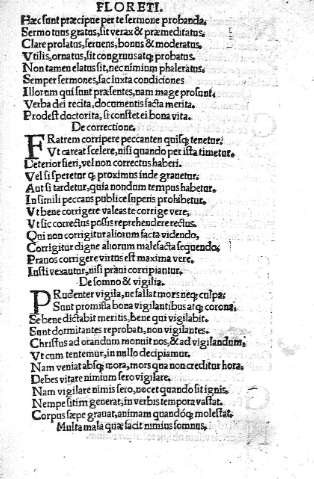 FLORETI.
Hæc sunt præcipue per te sermone probanda,
Sermo tuus gratus, sit verax & præmeditatus.
Clare prolatus, feruens, bonus & moderatus,
Vtilis, ornatus, sit congruus atq; probatus.
Non tamen elatus sit, nec nimium phaleratus.
Semper sermones, fac iuxta condiciones
Illorum qui sunt præsentes, nam mage prosunt.
Verba dei recita, documentis facta merita.
Prodest doctorita, si constet ei bona vita.
De correctione.
FRatrem corripere peccanten quisq; tenetur.
Vt careat scelere, nisi quando per ista timetur.
Deterior fieri, vel non correctus haberi.
Vel si speretur q; proximus inde grauetur.
Aut si tardetur, quia nondum tempus habetur.
In simili peccans publice superis prohibetur.
Vt bene corrigere valeas te corrige vere,
Vt sic correctus possis reprehendere rectus.
Qui non corrigitur aliorum facta videndo,
Corrigitur digne aliorum malefacta sequendo,
Prauos corrigere virtus est maxima vere,
Iusti vexantur, nisi praui corripiantur.
De somno & vigilia.
PRudenter vigila, ne fallat mors neq; culpa,
Sunt promissa bona vigilantibus atq; corona,
Se bene dictabit meritis, bene qui vigilabit.
Sunt dormitantes reprobati, non vigilantes.
Christus ad orandum monuit nos, & ad vigilandum
Vt cum tentemur, in nullo decipiamur.
Nam veniat absq; mora, mors qua non creditur hora,
Debes vitare nimium sero vigilare.
Nam vigilare nimis sero, nocet quando sit ignis.
Nempe sitim generat, in verbis tempora vastat.
Corpus sæpe grauat, animam quandoq; molestat.
Multa mala quæ facit nimius somnus.